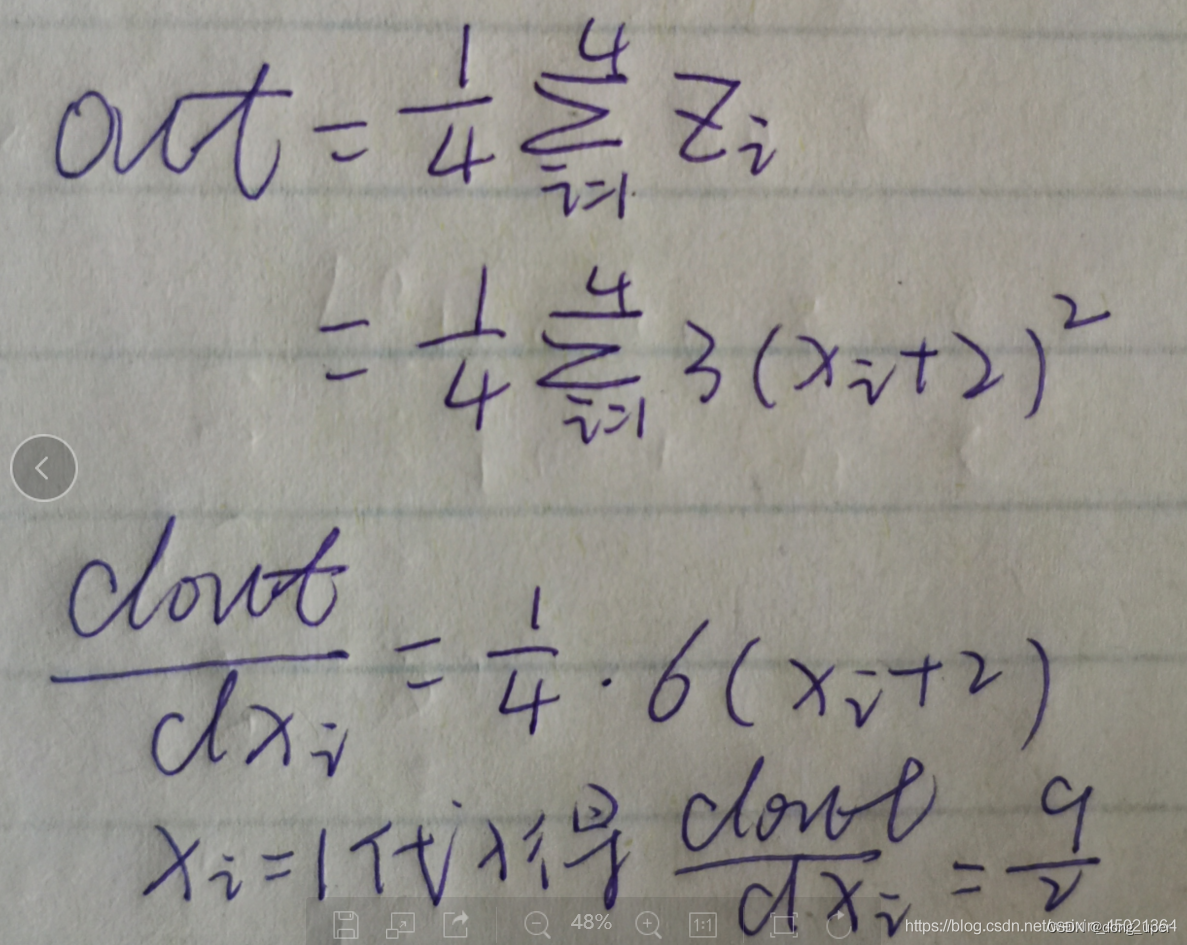 out = \frac{1}{4} \sum_{i=1}^{4} z_i
= \frac{1}{4} \sum_{i=1}^{4} 3(x_i+2)^2
\frac{dout}{dx_i} = \frac{1}{4} \cdot 6(x_i+2)
x_i=1代入得 \frac{dout}{dx_i} = \frac{9}{2}
48% 1:1